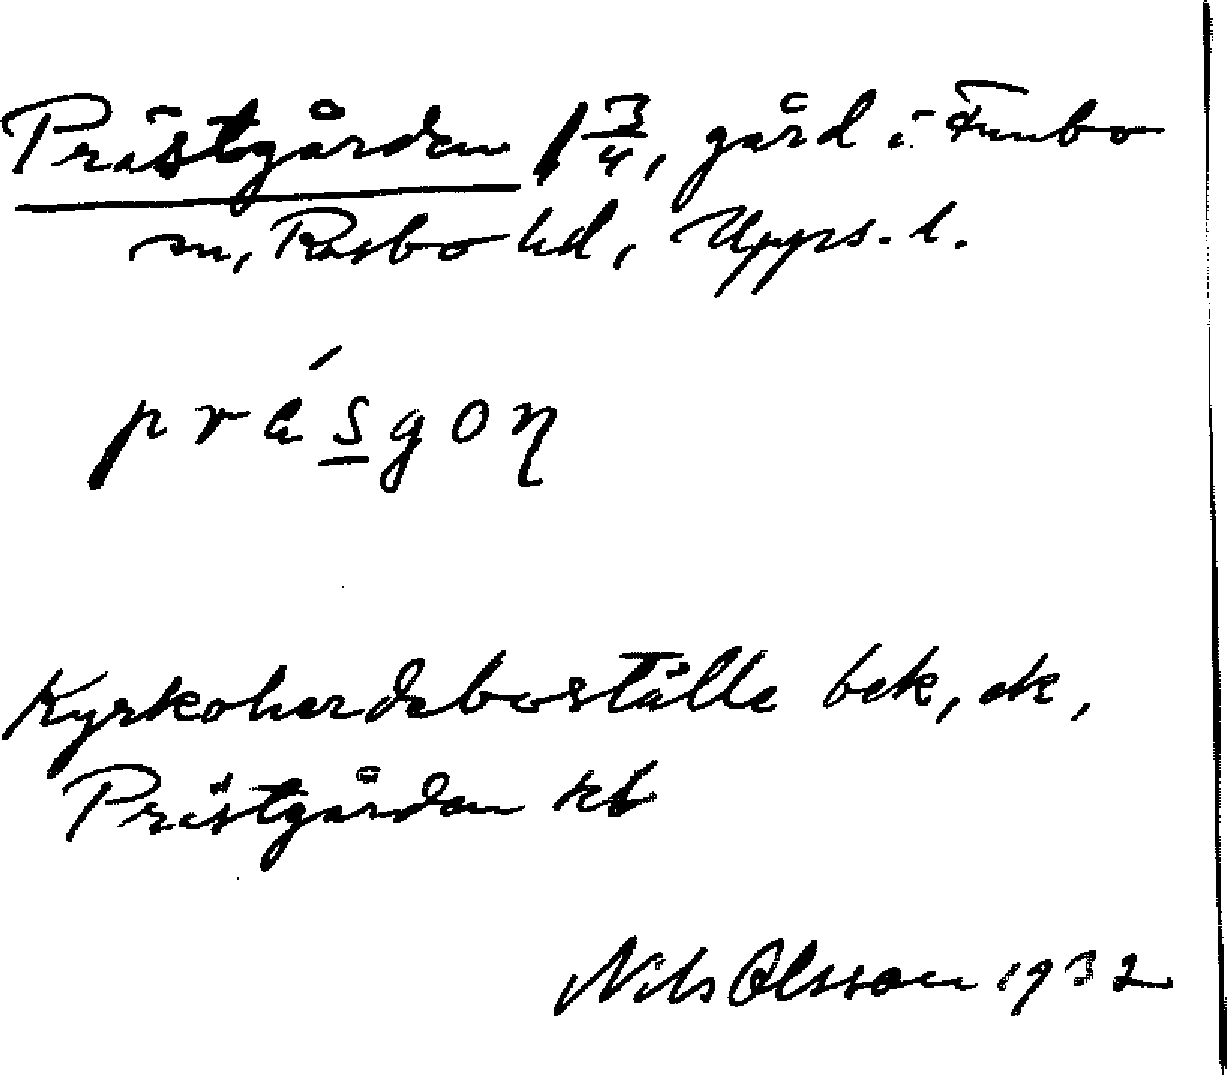 Prästgården 1 3/4, gård i Funbo
sn, Rasbo hd, Upps. l.
Kyrkoherdeboställe bek, ek,
Prästgården kb
Nils Olsson 1932